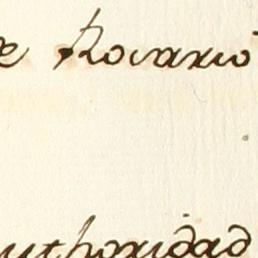 e Rosario
uthoridad